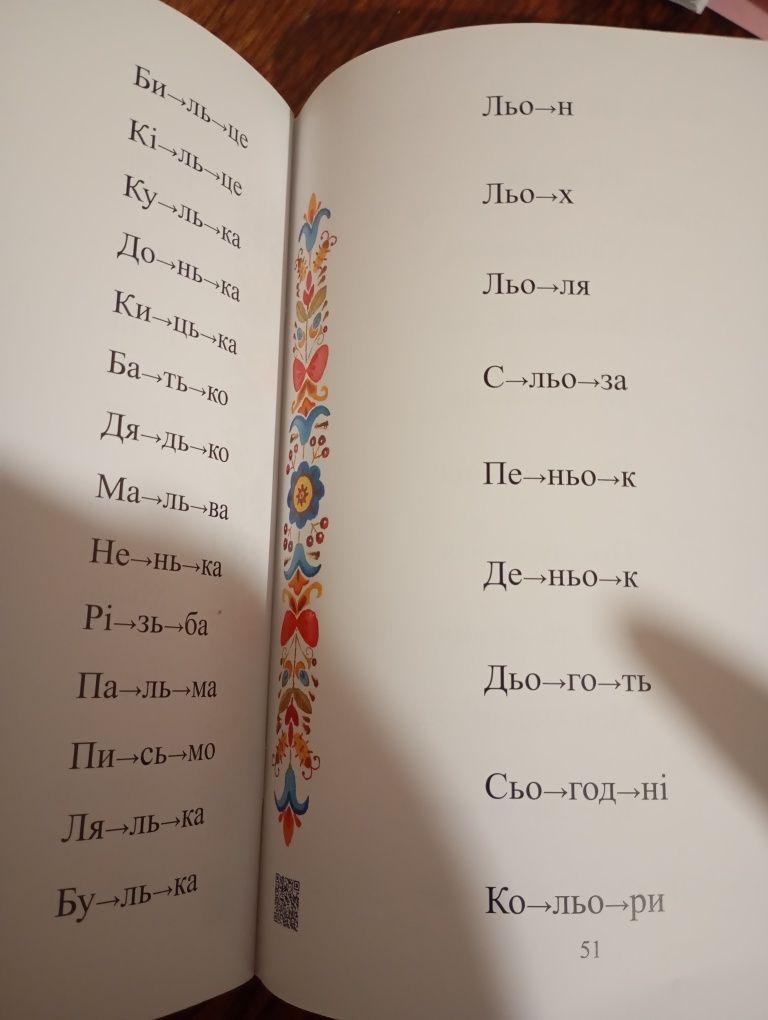 Би→ль→це
Кі→ль→це
Ку→ль→ка
До→нь→ка
Ки→ць→ка
Ба→ть→ко
Дя→дь→ко
Ма→ль→ва
Не→нь→ка
Рі→зь→ба
Па→ль→ма
Пи→сь→мо
Ля→ль→ка
Бу→ль→ка
Льо→н
Льо→х
Льо→ля
С→льо→за
Пе→ньо→к
Де→ньо→к
Дьо→го→ть
Сьо→год→ні
Ко→льо→ри
51